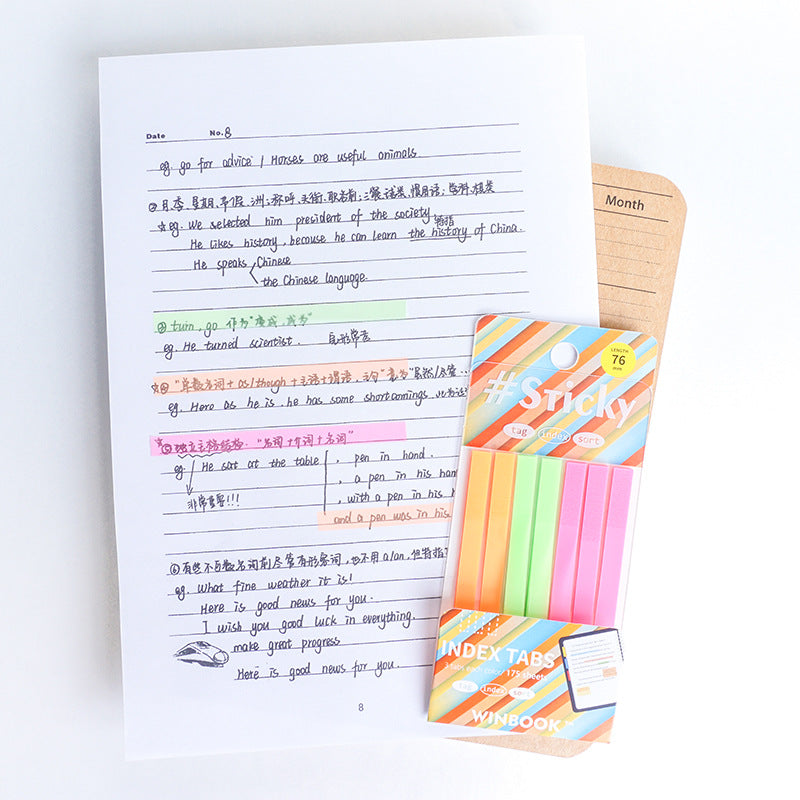 Date No.8
eg. go for advice / Horses are useful animals
②月、季、星期、寒假、洲;称呼、头衔、职名前;三餐、球类、惯用语;学科、棋类
☆eg. We selected him president of the society
特指
He likes history, because he can learn the history of China.
He speaks Chinese
the Chinese language.
③ turn, go 作为"变成,成为"
eg. He turned scientist.
☆④ "单数名词+as/though+主语+谓语,主句"意为"虽然/尽管
eg. Hero as he is, he has some shortcomings,
⑤独立主格结构:"名词+介词+名词"
eg. He sat at the table
, pen in hand.
, a pen in his han
, with a pen in his h
and a pen was in his
非常重要!!!
⑥有些不可数名词前尽管有形容词,也不用a/an,但特指
eg. What fine weather it is!
Here is good news for you.
I wish you good luck in everything.
make great progress
Here is good news for you.
8
Month
LENGTH
76
mm
#Sticky
tag index sort
INDEX TABS
3 tabs each color/175 sheets
tag index sort
WINBOOK